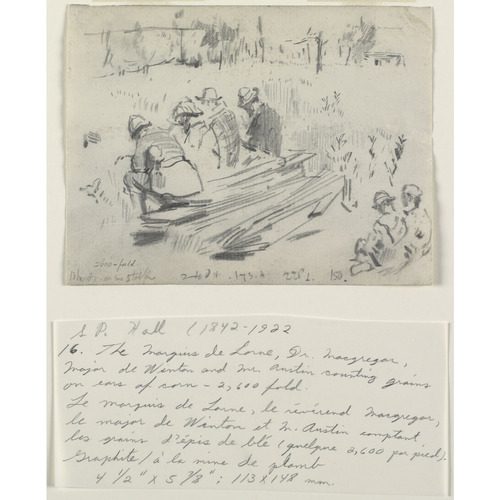 2600-fold
S. P. Hall (1842-1922
16. The Marquis de Lorne, Dr. Macgregor,
Major de Winton and Mr. Austin counting grains
on ears of corn - 2,600 fold.
Le marquis de Lorne, le révérend Macgregor,
le major de Winton et M. Austin comptant
les grains d'épis de blé (quelque 2,600 par pied).
Graphite / à la mine de plomb
4 1/2" x 5 7/8" ; 113 x 148 mm.